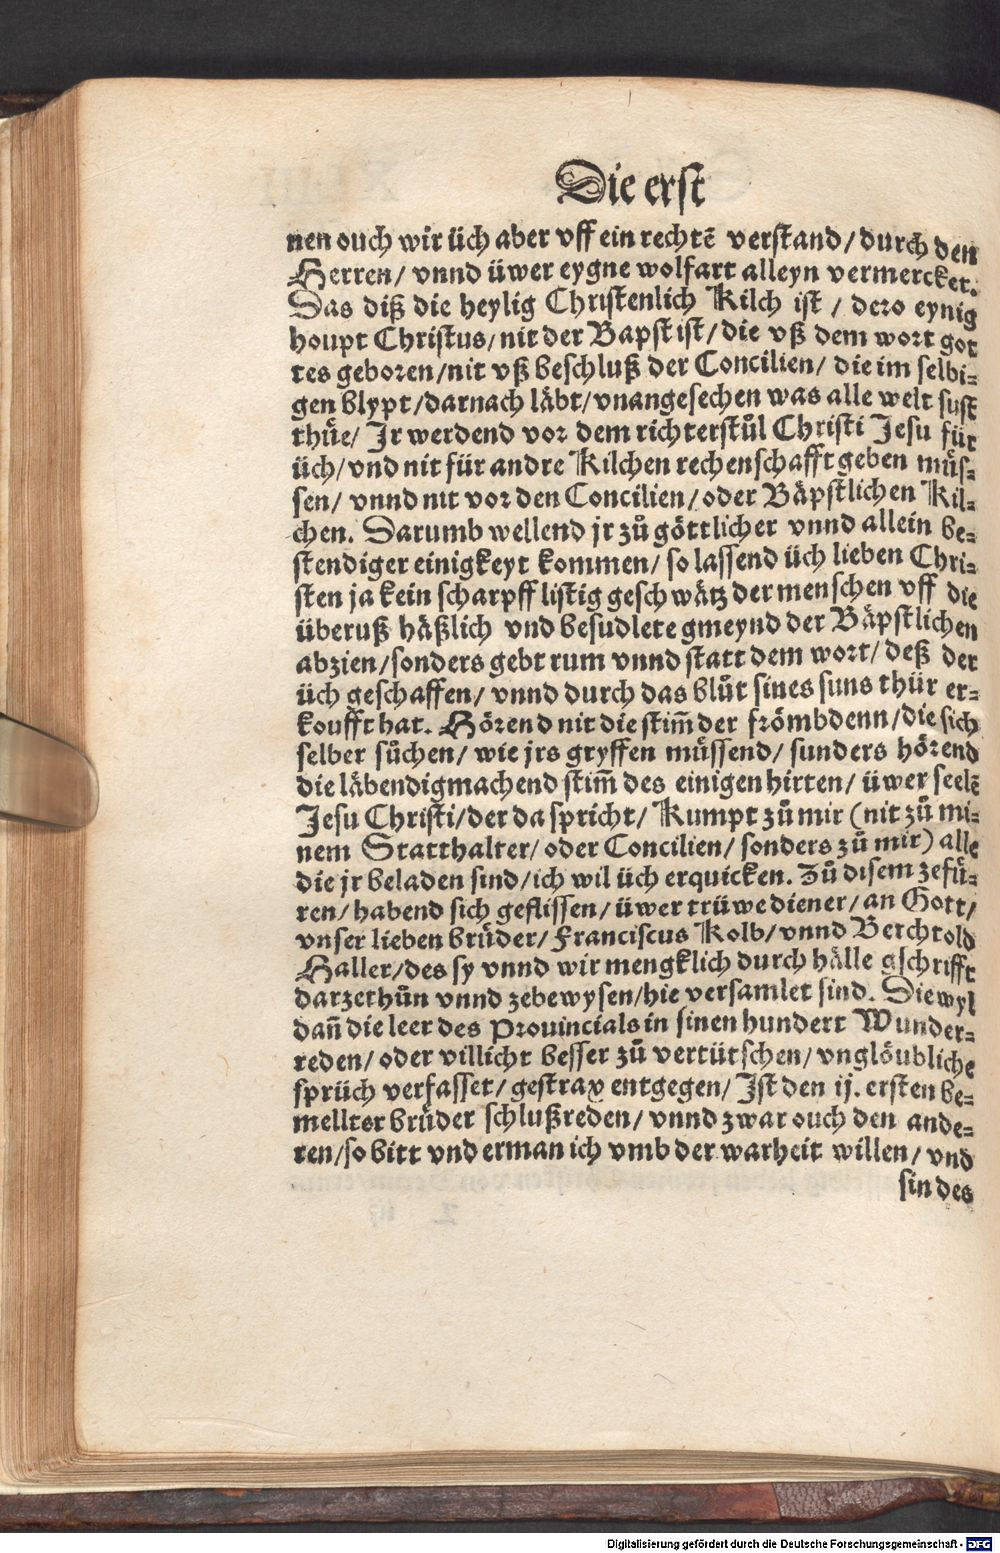 Die erst
nen ouch wir üch aber vff ein rechtē verstand/ durch den
Herren/ vnnd üwer eygne wolfart alleyn vermercket.
Das diß die heylig Christenlich Kilch ist / dero eynig
houpt Christus/ nit der Bapst ist/ die vß dem wort got
tes geboren/ nit vß beschluß der Concilien/ die im selbi-
gen blypt/ darnach läbt/ vnangesechen was alle welt sust
thuͤe/ Jr werdend vor dem richterstuͦl Christi Jesu für
üch/ vnd nit für andre Kilchen rechenschafft geben muͤs-
sen/ vnnd nit vor den Concilien/ oder Bäpstlichen Kil-
chen. Darumb wellend jr zuͦ göttlicher vnnd allein be-
stendiger einigkeyt kommen/ so lassend üch lieben Chri-
sten ja kein scharpff listig geschwätz der menschen vff die
überuß häßlich vnd besudlete gmeynd der Bäpstlichen
abzien/ sonders gebt rum vnnd statt dem wort/ deß der
üch geschaffen/ vnnd durch das bluͦt sines suns thür er-
koufft hat. Hörend nit die stim̄ der frömbdenn/ die sich
selber suͦchen/ wie jrs gryffen muͤssend/ sunders hörend
die läbendigmachend stim̄ des einigen hirten/ üwer seelē
Jesu Christi/ der da spricht/ Kumpt zuͦ mir (nit zuͦ mi-
nem Statthalter/ oder Concilien/ sonders zuͦ mir) alle
die jr beladen sind/ ich wil üch erquicken. Zuͦ disem zefuͤ-
ren/ habend sich geflissen/ üwer trüwe diener/ an Gott/
vnser lieben bruͤder/ Franciscus Kolb/ vnnd Berchtold
Haller/ des sy vnnd wir mengklich durch hälle gschrifft
darzethuͦn vnnd zebewysen/ hie versamlet sind. Die wyl
dan̄ die leer des Prouincials in sinen hundert Wunder-
reden/ oder villicht besser zuͦ vertütschen/ vnglöubliche
sprüch verfasset/ gestrax entgegen/ Jst den ij. ersten be-
mellter bruͤder schlußreden/ vnnd zwar ouch den ande-
ren/ so bitt vnd erman ich vmb der warheit willen/ vnd
sin des
Digitalisierung gefördert durch die Deutsche Forschungsgemeinschaft - DFG